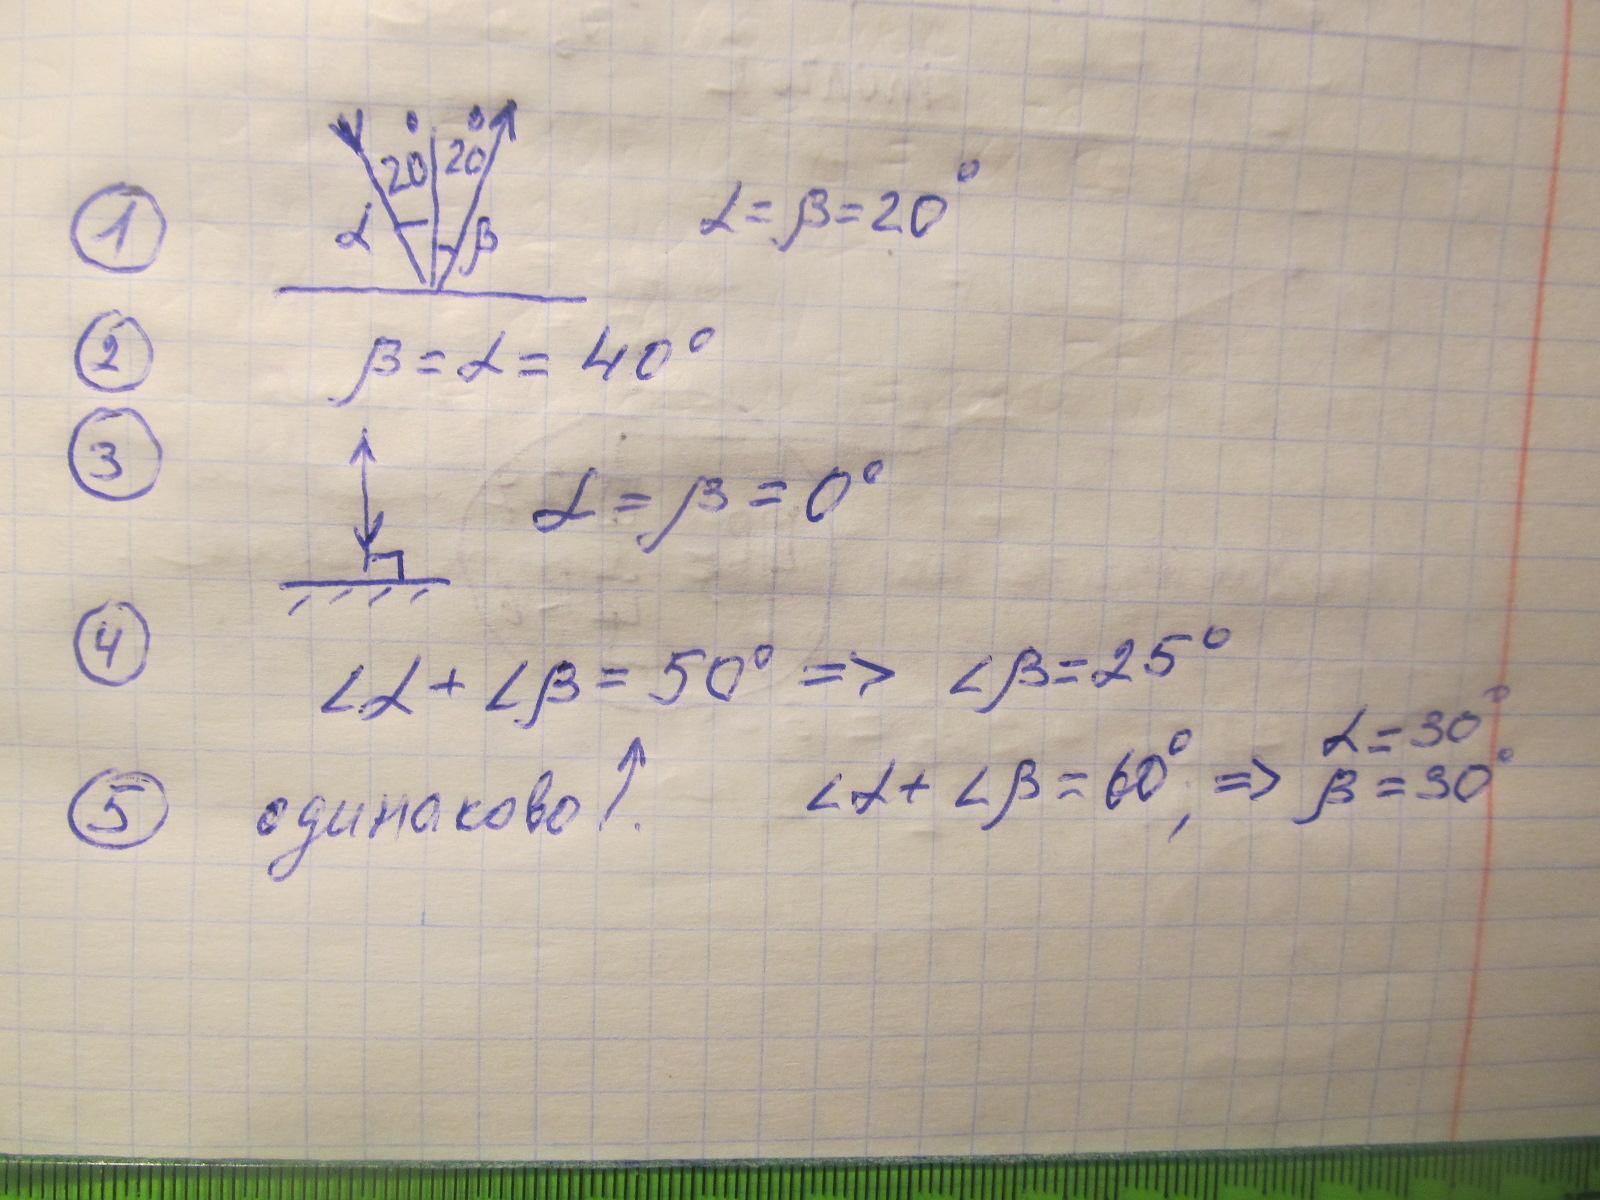 20° 20°
① α β α = β = 20°
② β = α = 40°
③ α = β = 0°
④ ∠α + ∠β = 50° => ∠β = 25°
⑤ одинаково! ∠α + ∠β = 60°, => α = 30°
β = 30°